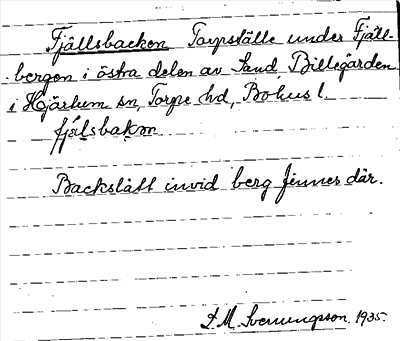 Fjällsbacken Torpställe under Fjäll-
bergen i östra delen av Sand Billegården
i Hjärtum sn, Torpe hd, Bohus l.
fjälsbakən
Backslätt invid berg finnes där.
D. M. Svenungsson. 1935.